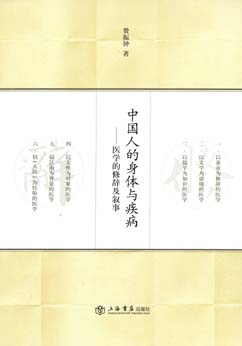 费振钟 著
中国人的身体与疾病
——医学的修辞及叙事
一 以妄言为修辞的医学
二 以文学为语境的医学
三 以儒学为知识的医学
四 以女性为对象的医学
五 以江南为背景的医学
六 以“人民”为经验的医学
上海书店出版社